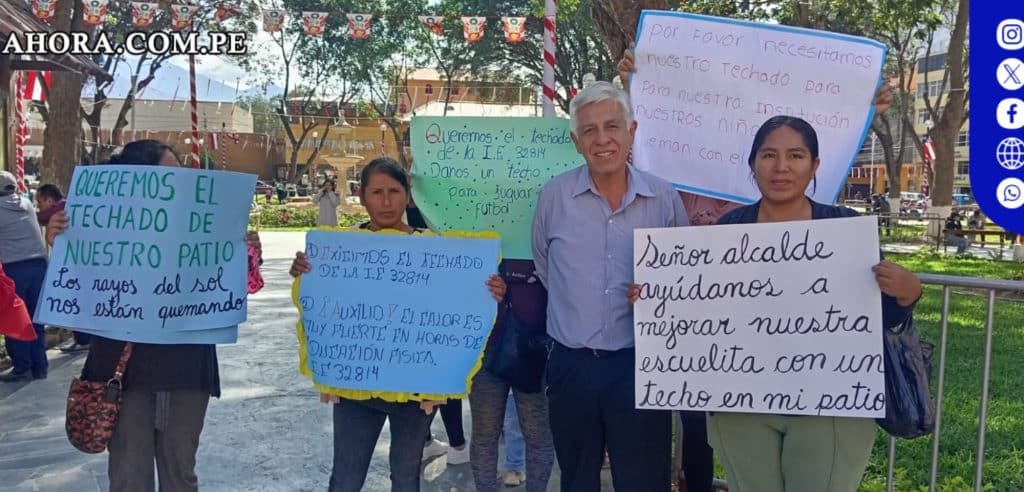 AHORA.COM.PE
QUEREMOS EL
TECHADO DE
NUESTRO PATIO
Los rayos del sol
nos están quemando
EXIGIMOS EL TECHADO
DE LA I.E 32814
¡AUXILIO! EL CALOR ES
MUY FUERTE EN HORAS DE
EDUCACIÓN FISICA.
I.E 32814
Queremos el techado
de la I.E. 32814
Danos un techo
para juguar
futbol
por favor necesitamos
nuestro techado para
para nuestra institución
nuestros niñ
eman con el
Señor alcalde
ayúdanos a
mejorar nuestra
escuelita con un
techo en mi patio